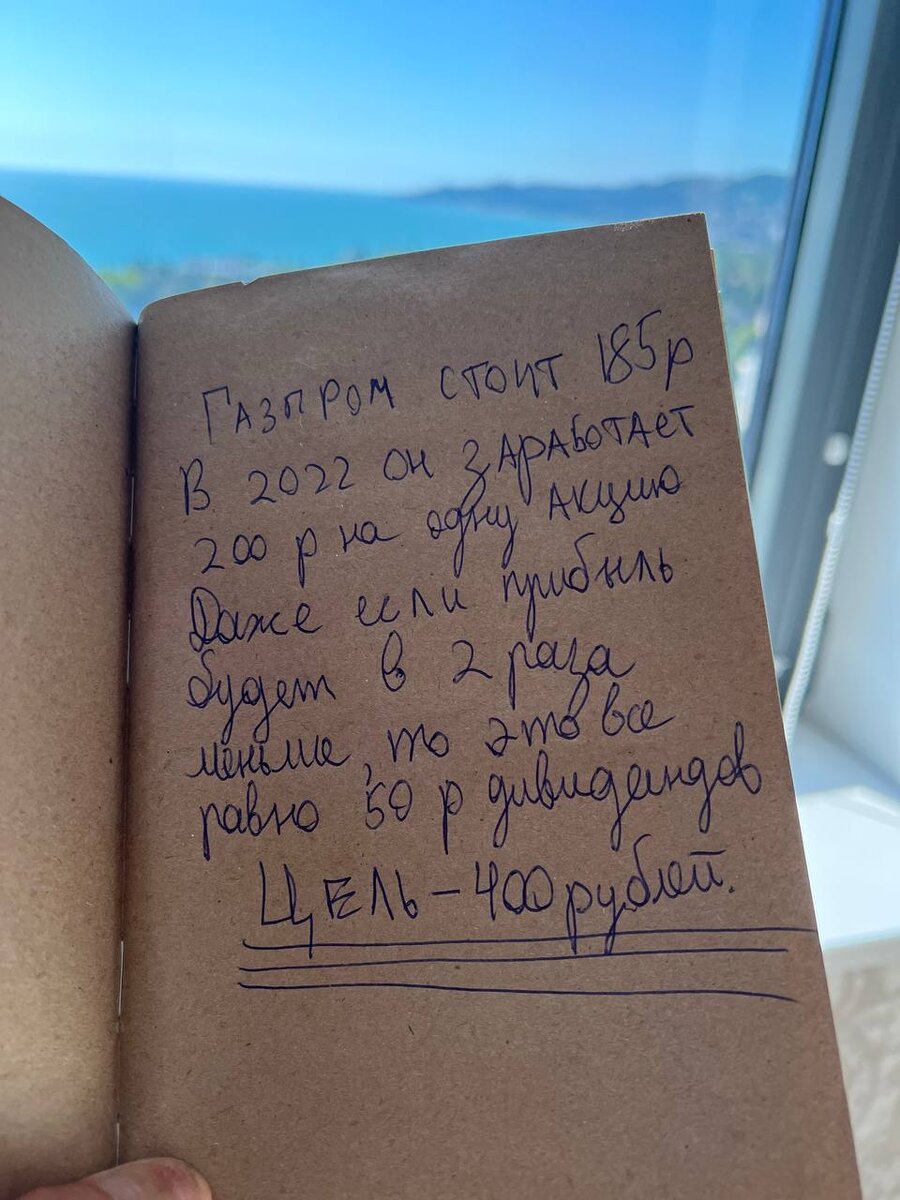 Газпром стоит 185р
В 2022 он заработает
200 р на одну акцию
Даже если прибыль
будет в 2 раза
меньше, то это все
равно 50 р дивидендов
ЦЕЛЬ - 400 рублей.